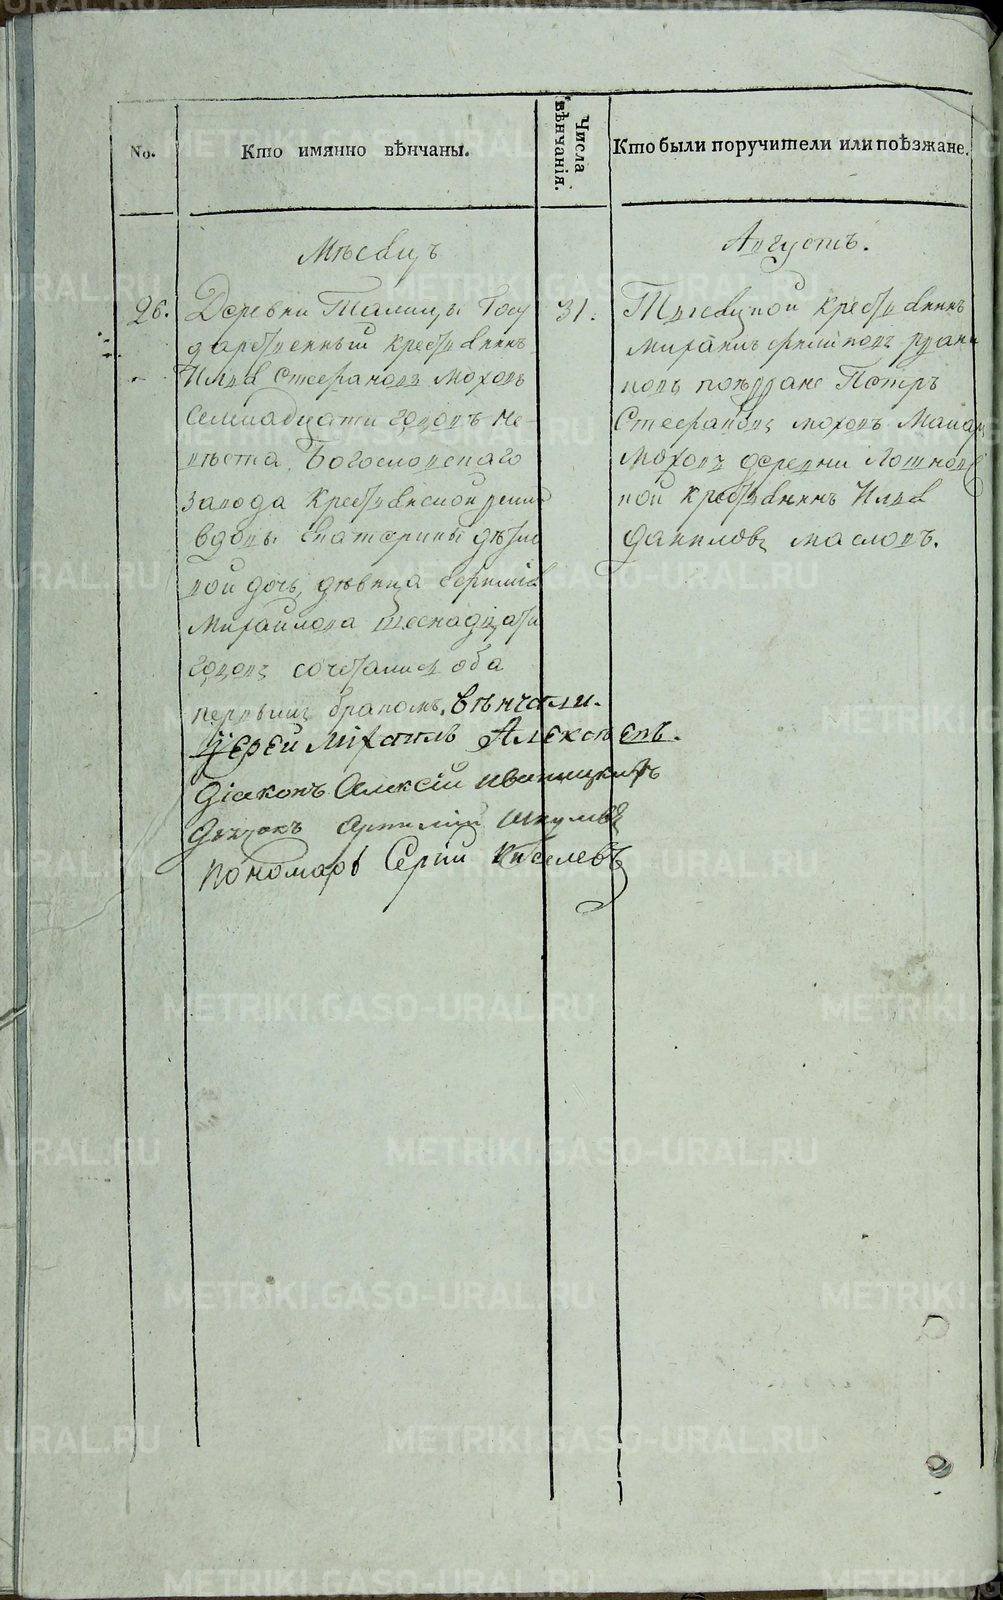 No.
Кто имянно вѣнчаны.
Числа вѣнчанія.
Кто были поручители или поѣзжане.
Мѣсяцъ
Августъ.
26. Деревни Талицы Госу
дарственный крестьянинъ
Илья Стефановъ Моховъ
семнадцати годовъ не-
вѣста, Богословскаго
завода крестьянской
вдовы Екатерины
дочь, дѣвица
Михайлова шеснадцати
годовъ сочетались оба
первымъ бракомъ. Вѣнчали.
Іерей Михаилъ Алексѣевъ.
Діаконъ Алексій
Дьячокъ
Пономарь Сергій Киселевъ
31.
крестьянинъ
Михаилъ
поѣзжане Петръ
Стефановъ Моховъ
Моховъ деревни
крестьянинъ Илья
Даниловъ Масловъ.
METRIKI.GASO-URAL.RU